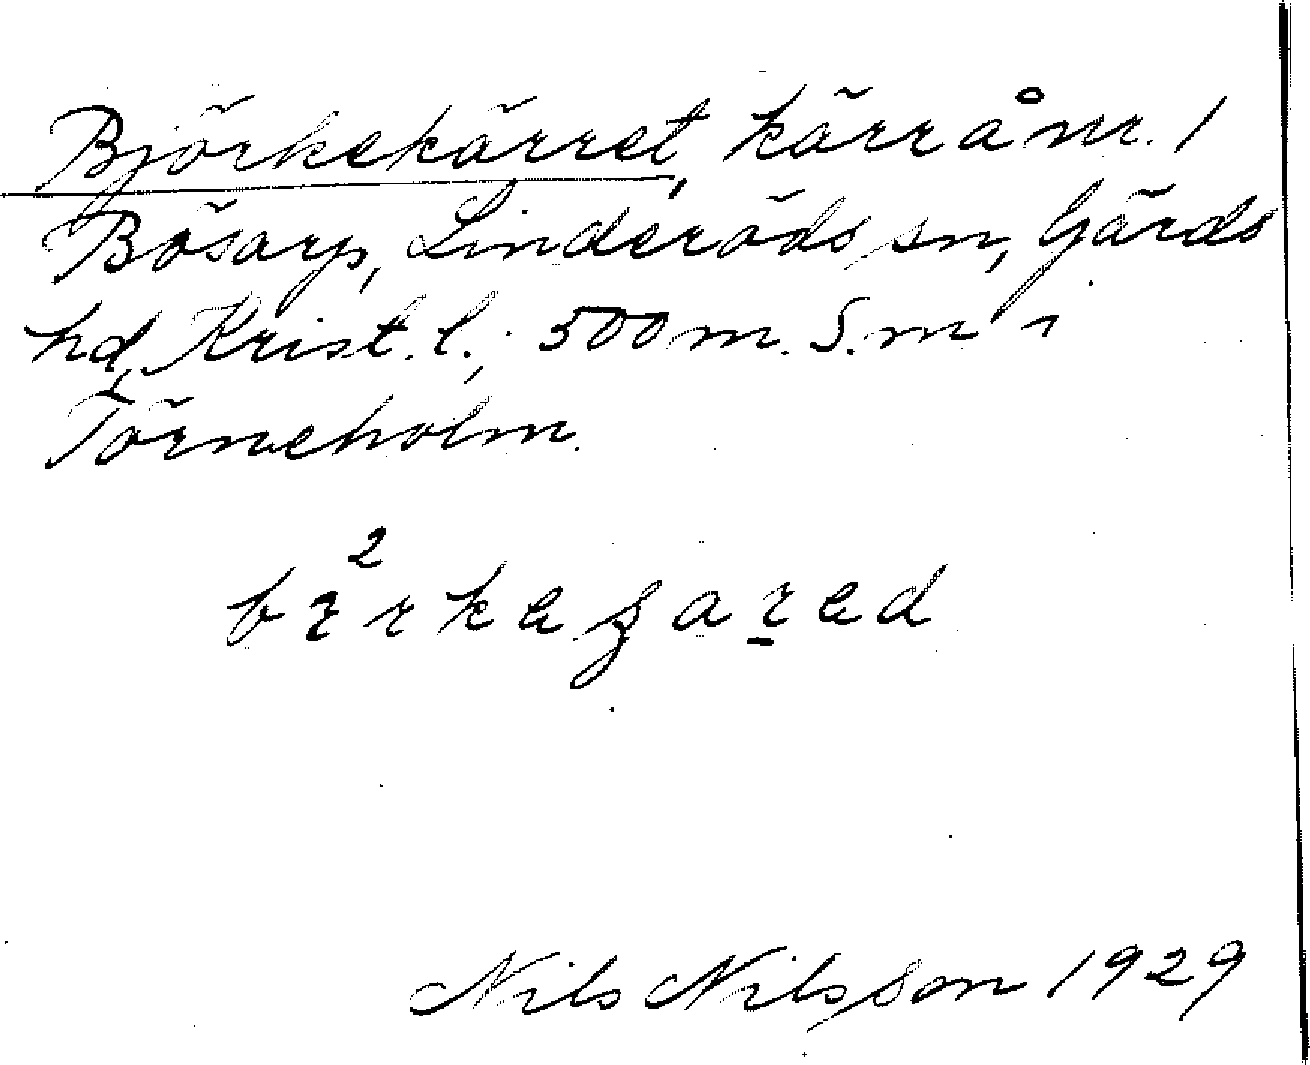 Björkekärret, kärr å nr. 1
Bösarp, Linderöds sn, Gärds
hd, Krist. l.; 500 m. S. om
Törneholm.
Nils Nilsson 1929